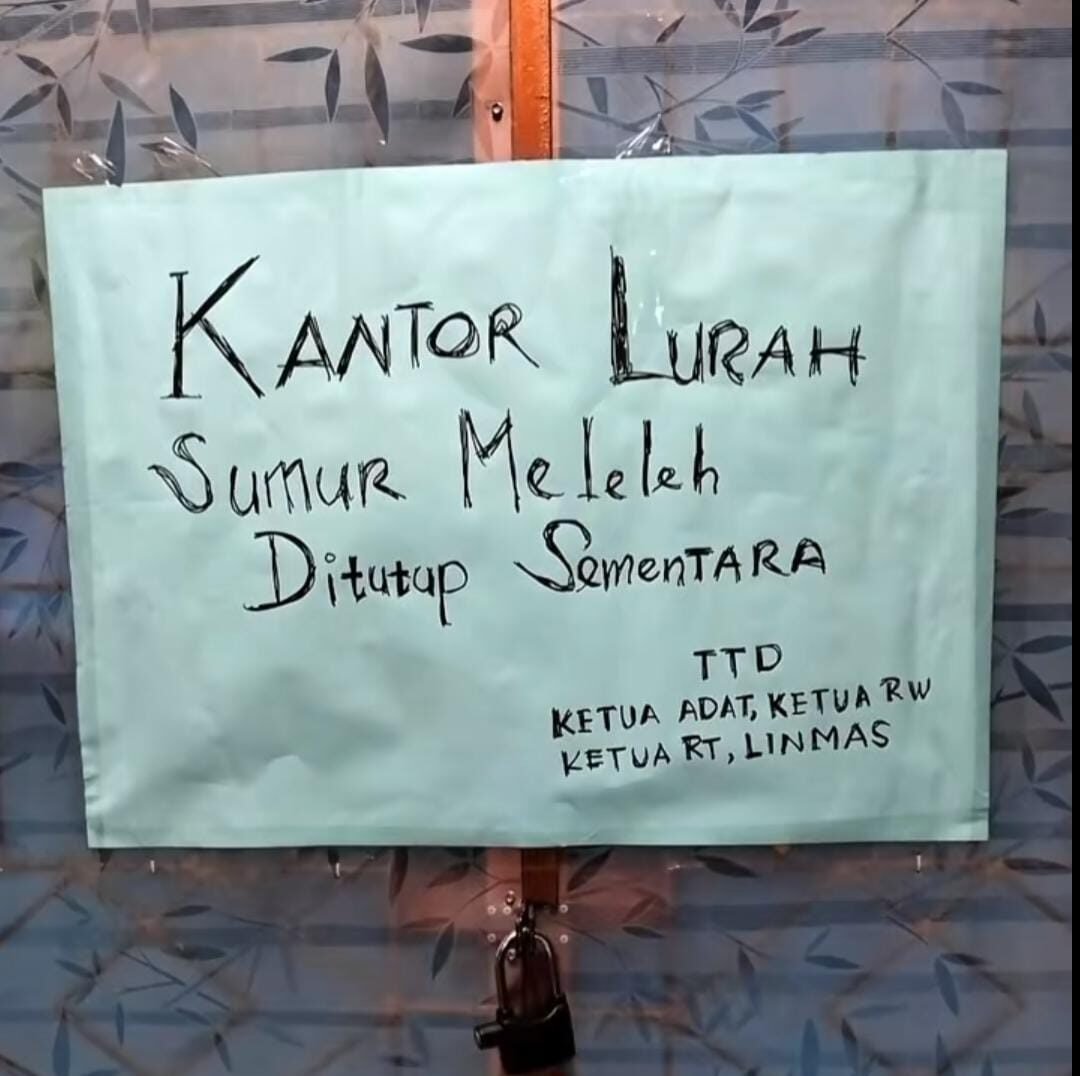 KANTOR LURAH
Sumur Meleleh
Ditutup SemenTARA
TTD
KETUA ADAT, KETUA RW
KETUA RT, LINMAS